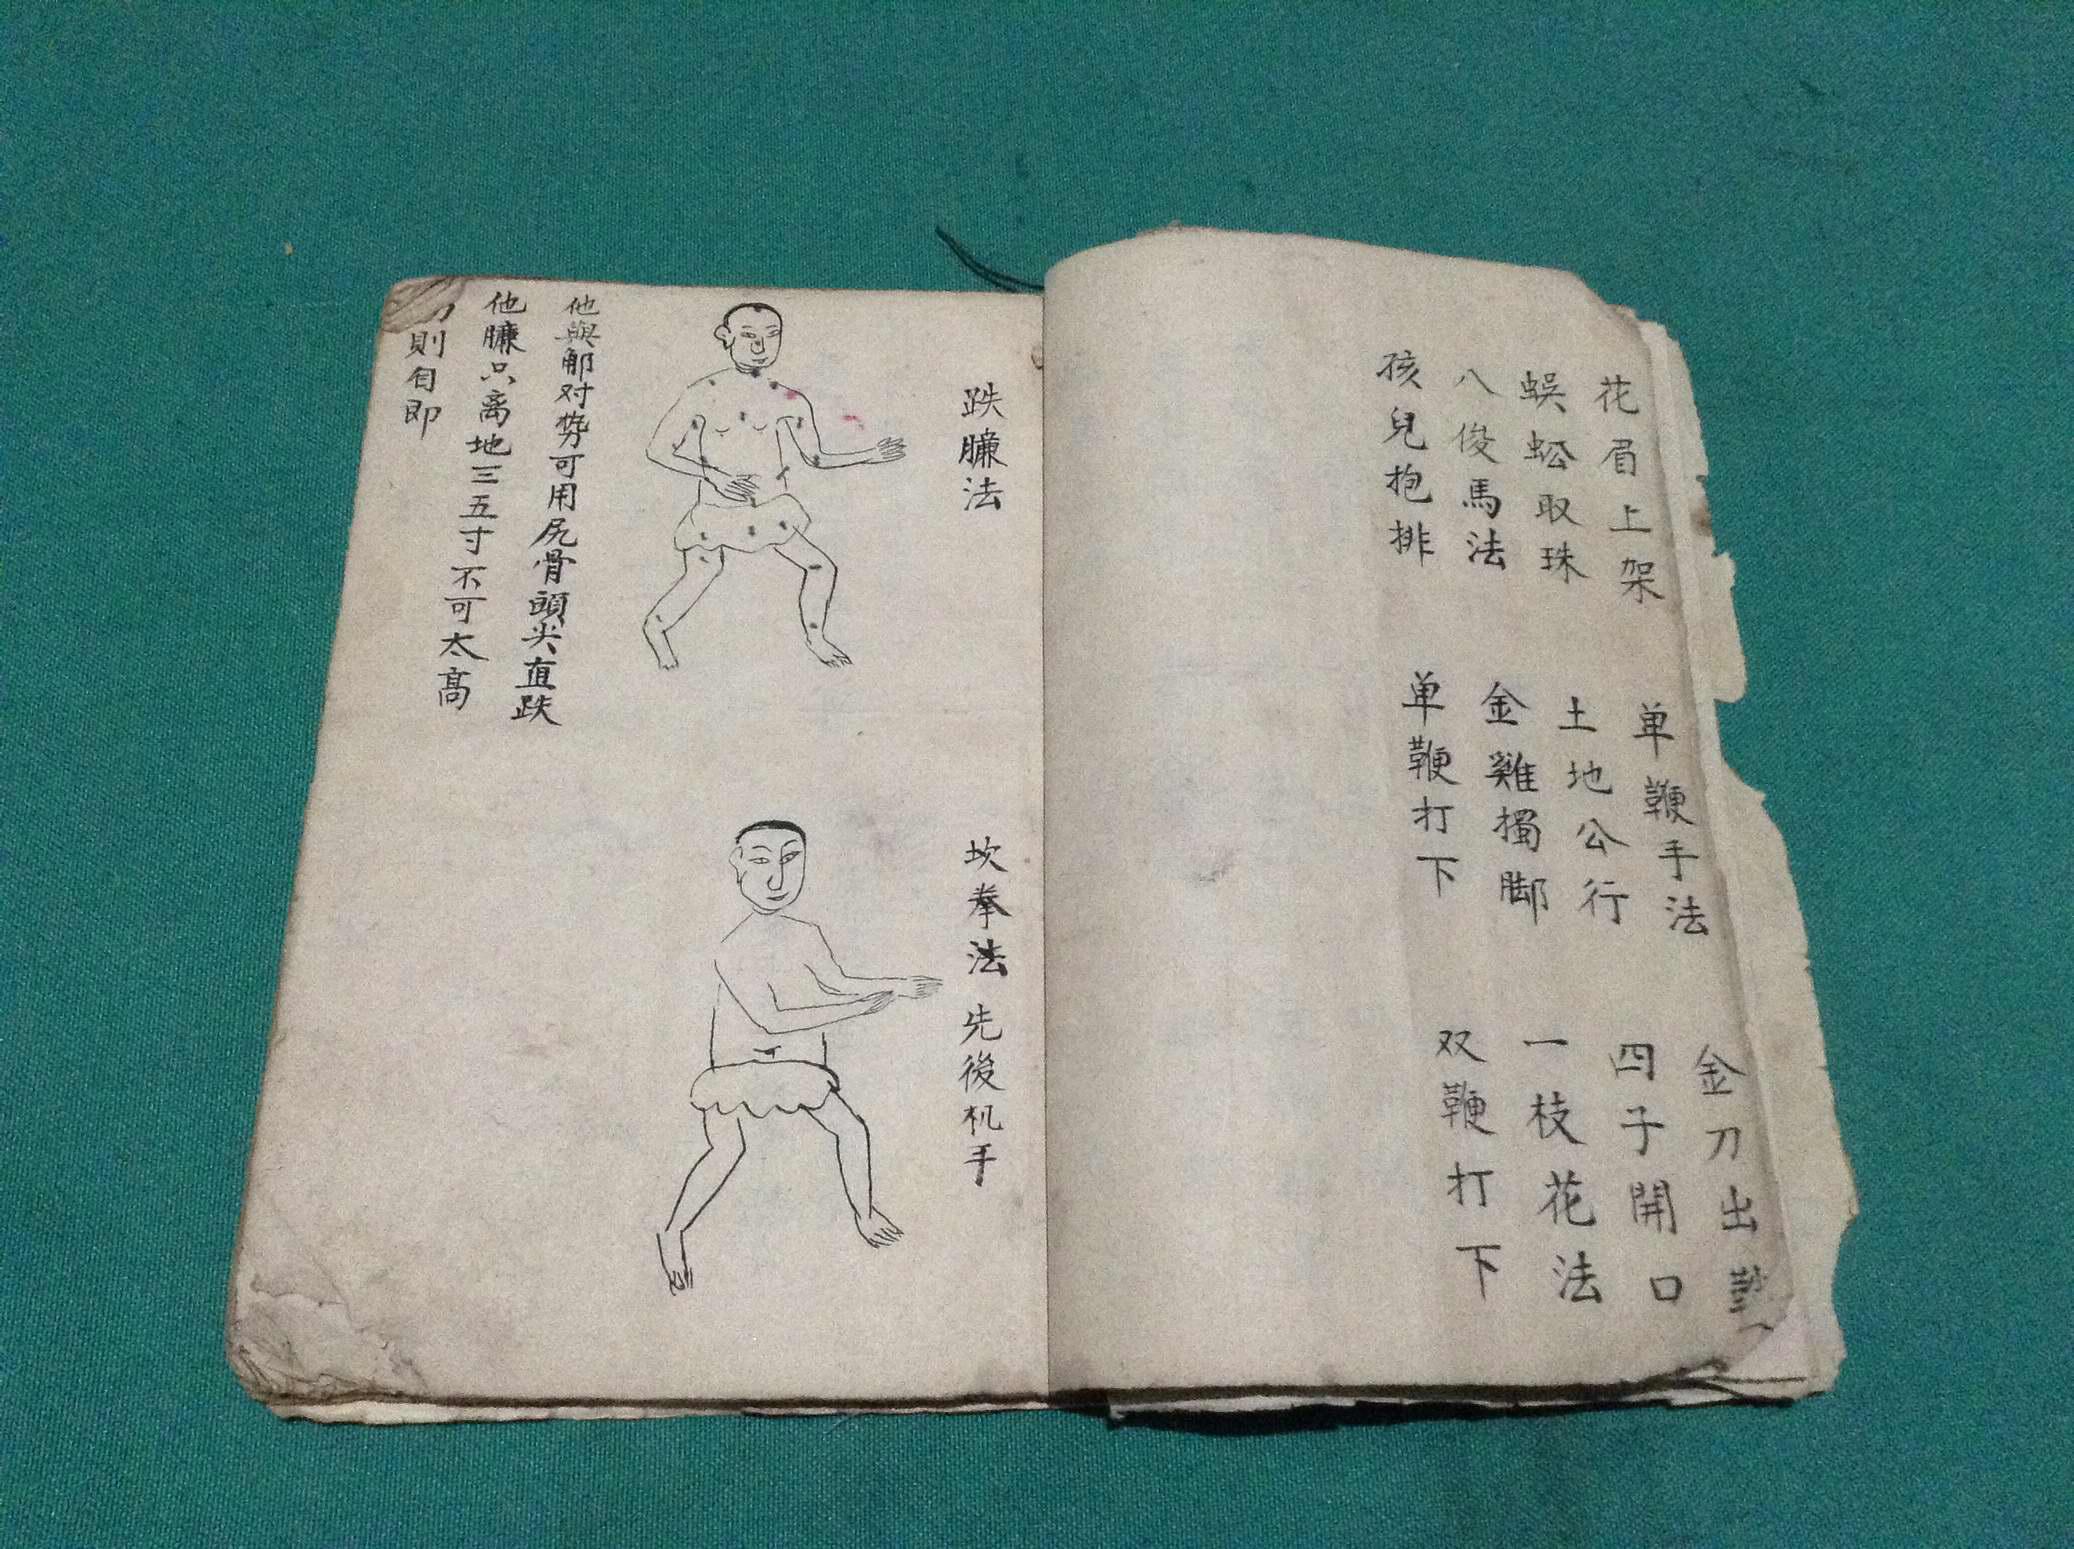 花眉上架
单鞭手法
金刀出
蜈蚣取珠
土地公行
四子開口
八俊馬法
金雞獨脚
一枝花法
孩兒抱排
单鞭打下
双鞭打下
跌臁法
坎拳法 先後机手
他與郁对势可用尻骨頭尖直跌
他臁只离地三五寸不可太高
則自即